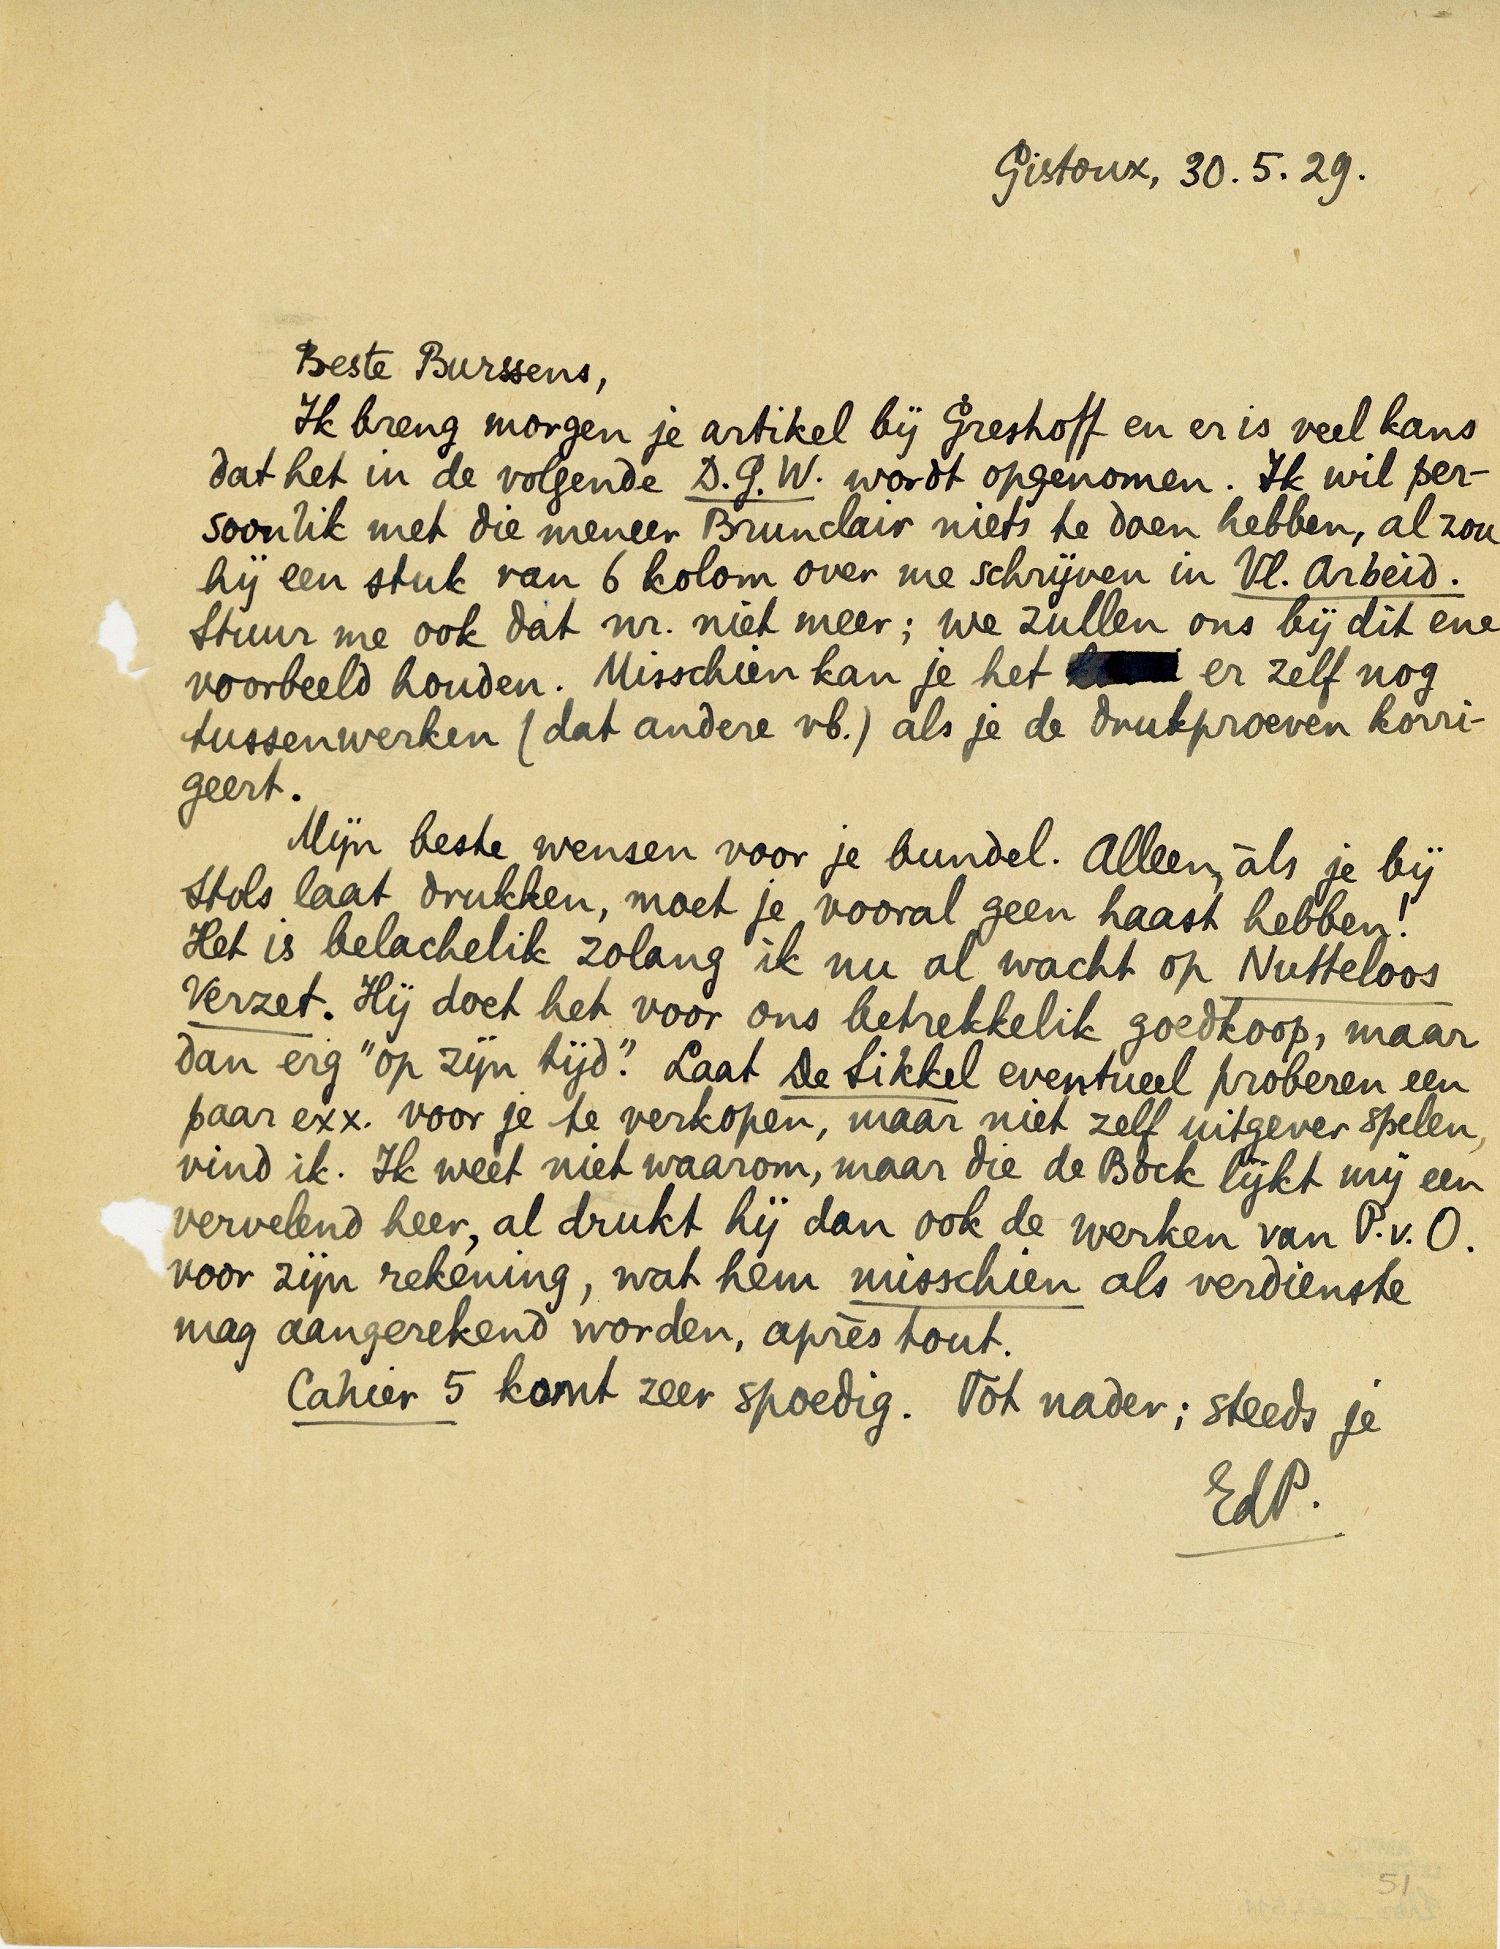 Gistoux, 30.5.29.
Beste Burssens,
Ik breng morgen je artikel bij Greshoff en er is veel kans
dat het in de volgende D.G.W. wordt opgenomen. Ik wil per-
soonlik met die meneer Brunclair niets te doen hebben, al zou
hij een stuk van 6 kolom over me schrijven in Vl. Arbeid.
Stuur me ook dat nr. niet meer; we zullen ons bij dit ene
voorbeeld houden. Misschien kan je het er zelf nog
tussenwerken (dat andere vb.) als je de drukproeven korri-
geert.
Mijn beste wensen voor je bundel. Alleen, als je bij
Stols laat drukken, moet je vooral geen haast hebben!
Het is belachelik zolang ik nu al wacht op Nutteloos
Verzet. Hij doet het voor ons betrekkelik goedkoop, maar
dan erg "op zijn tijd". Laat De Sikkel eventueel proberen een
paar exx. voor je te verkopen, maar niet zelf uitgever spelen,
vind ik. Ik weet niet waarom, maar die de Bock lijkt mij een
vervelend heer, al drukt hij dan ook de werken van P.v.O.
voor zijn rekening, wat hem misschien als verdienste
mag aangerekend worden, après tout.
Cahier 5 komt zeer spoedig. Tot nader; steeds je
EdP.
51